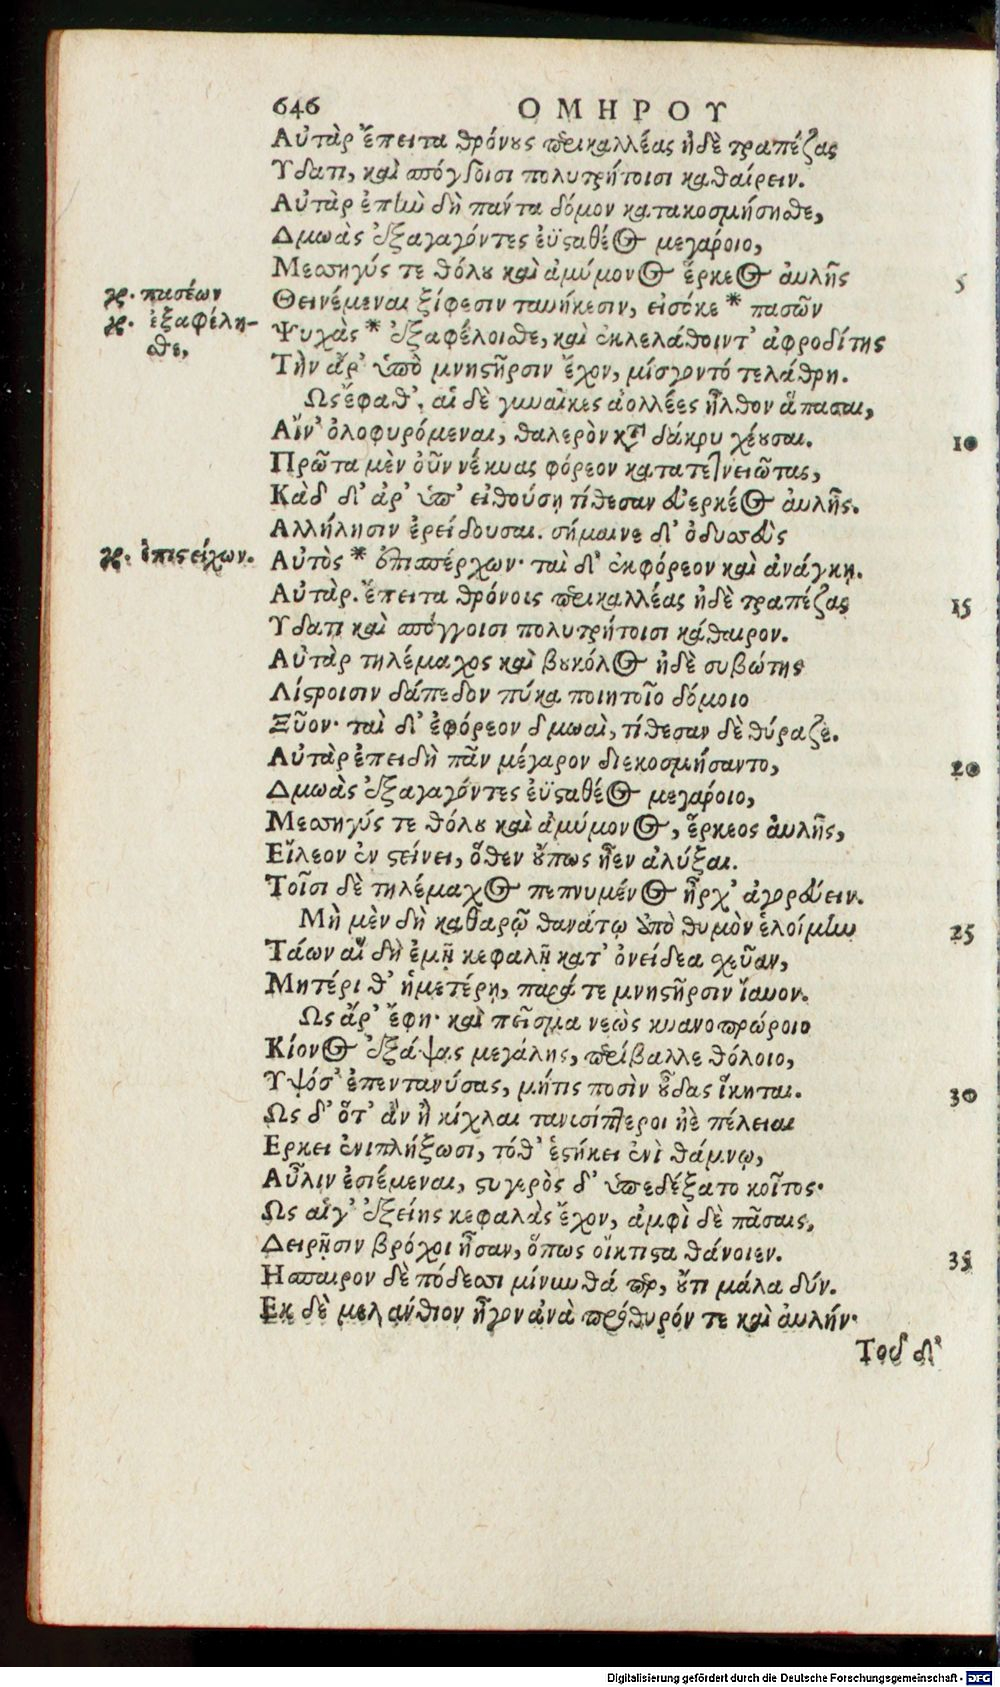 646 ΟΜΗΡΟΥ
Αὐτὰρ ἔπειτα θρόνους περικαλλέας ἠδὲ τραπέζας
Υδατι, καὶ σπόγγοισι πολυτρήτοισι καθαίρειν.
Αὐτὰρ ἐπὴν δὴ πάντα δόμον κατακοσμήσησθε,
Δμωὰς ἐξαγαγόντες ἐϋσταθέος μεγάροιο,
Μεσσηγύς τε θόλου καὶ ἀμύμονος ἕρκεος αὐλῆς 5
γρ. πασέων
Θεινέμεναι ξίφεσιν τανυήκεσιν, εἰσόκε * πασῶν
γρ. ἐξαφέλη-
σθε,
Ψυχὰς * ἐξαφέλοισθε, καὶ ἐκλελάθοιντ' ἀφροδίτης
Τὴν ἄρ' ὑπὸ μνηστῆρσιν ἔχον, μίσγοντό τε λάθρη.
Ως ἔφαθ', αἱ δὲ γυναῖκες ἀολλέες ἦλθον ἅπασαι,
Αἴν' ὀλοφυρόμεναι, θαλερὸν κατὰ δάκρυ χέουσαι. 10
Πρῶτα μὲν οὖν νέκυας φόρεον κατατεθνειῶτας,
Κὰδ δ' ἀρ' ὑπ' αἰθούσῃ τίθεσαν εὐερκέος αὐλῆς.
Αλλήλησιν ἐρείδουσαι. σήμαινε δ' ὀδυσσεὺς
γρ. ἐπιστείχων.
Αὐτὸς * ἐπισπέρχων· ταὶ δ' ἐκφόρεον καὶ ἀνάγκῃ.
Αὐτὰρ. ἔπειτα θρόνοις περικαλλέας ἠδὲ τραπέζας 15
Υδατι καὶ σπόγγοισι πολυτρήτοισι κάθαιρον.
Αὐτὰρ τηλέμαχος καὶ βουκόλος ἠδὲ συβώτης
Λίστροισιν δάπεδον πύκα ποιητοῖο δόμοιο
Ξῦον· ταὶ δ' ἐφόρεον δμωαὶ, τίθεσαν δὲ θύραζε.
Αὐτὰρ ἐπειδὴ πᾶν μέγαρον διεκοσμήσαντο, 20
Δμωὰς ἐξαγαγόντες ἐϋσταθέος μεγάροιο,
Μεσσηγύς τε θόλου καὶ ἀμύμονος, ἕρκεος αὐλῆς,
Εἴλεον ἐν στείνει, ὅθεν οὔπως ἦεν ἀλύξαι.
Τοῖσι δὲ τηλέμαχος πεπνυμένος ἦρχ' ἀγορεύειν.
Μὴ μὲν δὴ καθαρῷ θανάτῳ ἀπὸ θυμὸν ἑλοίμην 25
Τάων αἳ δὴ ἐμῇ κεφαλῇ κατ' ὀνείδεα χεῦαν,
Μητέρι θ' ἡμετέρῃ, παρά τε μνηστῆρσιν ἴαυον.
Ως ἄρ' ἔφη· καὶ πεῖσμα νεὼς κυανοπρώροιο
Κίονος ἐξάψας μεγάλης, περίβαλλε θόλοιο,
Υψόσ' ἐπεντανύσας, μήτις ποσὶν οὖδας ἵκηται. 30
Ως δ' ὅτ' ἂν ἢ κίχλαι τανυσίπτεροι ἠὲ πέλειαι
Ερκει ἐνιπλήξωσι, τόθ' ἑστήκει ἐνὶ θάμνῳ,
Αὖλιν ἐσιέμεναι, στυγερὸς δ' ὑπεδέξατο κοῖτος·
Ως αἵγ' ἑξείης κεφαλὰς ἔχον, ἀμφὶ δὲ πᾶσαις,
Δειρῇσιν βρόχοι ἦσαν, ὅπως οἴκτιστα θάνοιεν. 35
Ησπαιρον δὲ πόδεσσι μίνυνθά περ, οὔτι μάλα δήν.
Εκ δὲ μελάνθιον ἦγον ἀνὰ πρόθυρόν τε καὶ αὐλήν·
Τοῦ δ'
Digitalisierung gefördert durch die Deutsche Forschungsgemeinschaft - DFG